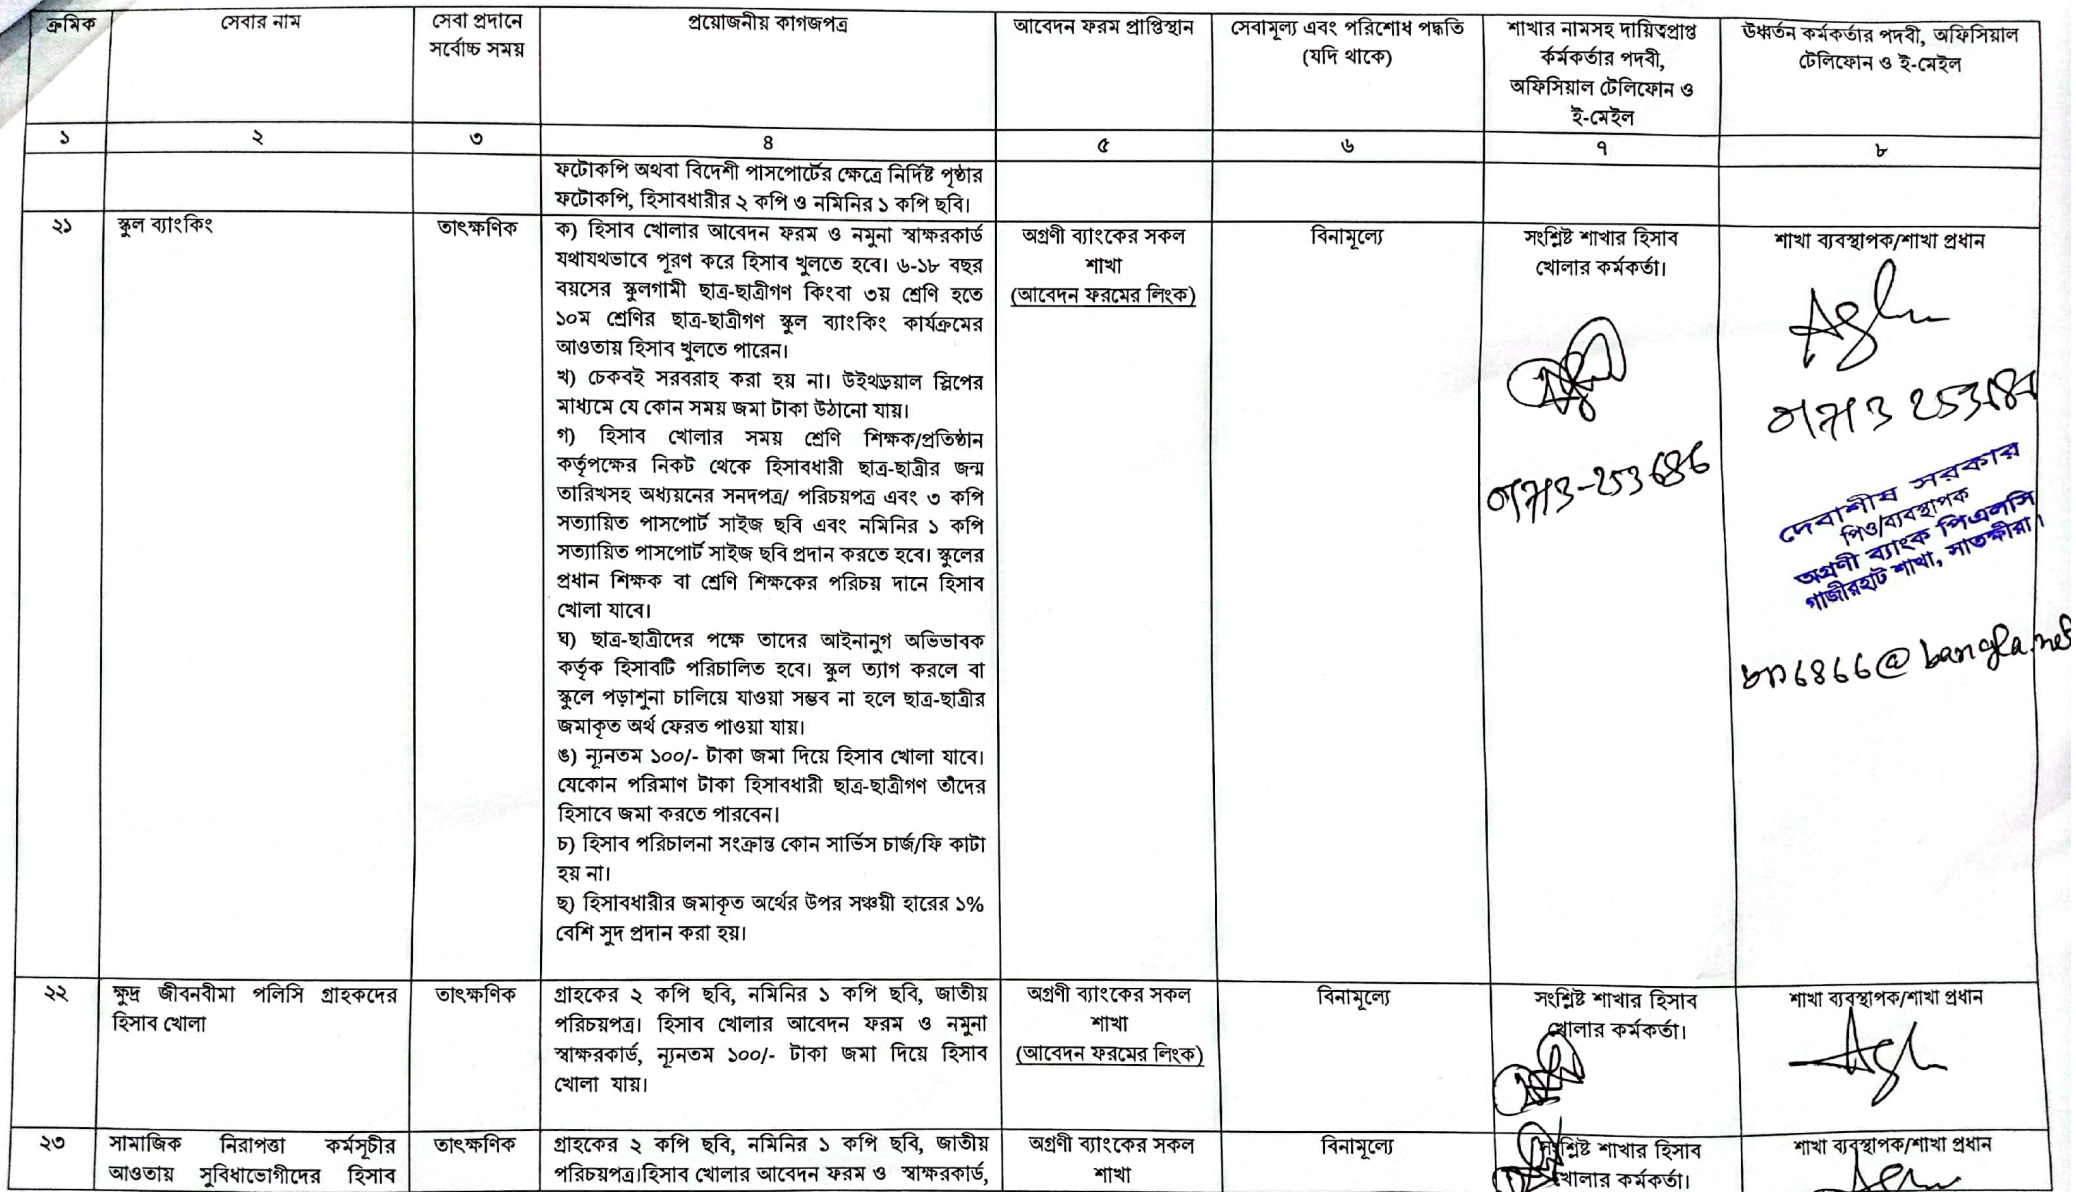 ক্রমিক
সেবার নাম
সেবা প্রদানে
সর্বোচ্চ সময়
প্রয়োজনীয় কাগজপত্র
আবেদন ফরম প্রাপ্তিস্থান
সেবামূল্য এবং পরিশোধ পদ্ধতি
(যদি থাকে)
শাখার নামসহ দায়িত্বপ্রাপ্ত
র্কর্মকর্তার পদবী,
অফিসিয়াল টেলিফোন ও
ই-মেইল
উর্ধ্বতন কর্মকর্তার পদবী, অফিসিয়াল
টেলিফোন ও ই-মেইল
১
২
৩
৪
৫
৬
৭
৮
ফটোকপি অথবা বিদেশী পাসপোর্টের ক্ষেত্রে নির্দিষ্ট পৃষ্ঠার
ফটোকপি, হিসাবধারীর ২ কপি ও নমিনির ১ কপি ছবি।
২১
স্কুল ব্যাংকিং
তাৎক্ষণিক
ক) হিসাব খোলার আবেদন ফরম ও নমুনা স্বাক্ষরকার্ড
যথাযথভাবে পূরণ করে হিসাব খুলতে হবে। ৬-১৮ বছর
বয়সের স্কুলগামী ছাত্র-ছাত্রীগণ কিংবা ৩য় শ্রেণি হতে
১০ম শ্রেণির ছাত্র-ছাত্রীগণ স্কুল ব্যাংকিং কার্যক্রমের
আওতায় হিসাব খুলতে পারেন।
খ) চেকবই সরবরাহ করা হয় না। উইথড্রয়াল স্লিপের
মাধ্যমে যে কোন সময় জমা টাকা উঠানো যায়।
গ) হিসাব খোলার সময় শ্রেণি শিক্ষক/প্রতিষ্ঠান
কর্তৃপক্ষের নিকট থেকে হিসাবধারী ছাত্র-ছাত্রীর জন্ম
তারিখসহ অধ্যয়নের সনদপত্র/ পরিচয়পত্র এবং ৩ কপি
সত্যায়িত পাসপোর্ট সাইজ ছবি এবং নমিনির ১ কপি
সত্যায়িত পাসপোর্ট সাইজ ছবি প্রদান করতে হবে। স্কুলের
প্রধান শিক্ষক বা শ্রেণি শিক্ষকের পরিচয় দানে হিসাব
খোলা যাবে।
ঘ) ছাত্র-ছাত্রীদের পক্ষে তাদের আইনানুগ অভিভাবক
কর্তৃক হিসাবটি পরিচালিত হবে। স্কুল ত্যাগ করলে বা
স্কুলে পড়াশুনা চালিয়ে যাওয়া সম্ভব না হলে ছাত্র-ছাত্রীর
জমাকৃত অর্থ ফেরত পাওয়া যায়।
ঙ) ন্যূনতম ১০০/- টাকা জমা দিয়ে হিসাব খোলা যাবে।
যেকোন পরিমাণ টাকা হিসাবধারী ছাত্র-ছাত্রীগণ তাঁদের
হিসাবে জমা করতে পারবেন।
চ) হিসাব পরিচালনা সংক্রান্ত কোন সার্ভিস চার্জ/ফি কাটা
হয় না।
ছ) হিসাবধারীর জমাকৃত অর্থের উপর সঞ্চয়ী হারের ১%
বেশি সুদ প্রদান করা হয়।
অগ্রণী ব্যাংকের সকল
শাখা
(আবেদন ফরমের লিংক)
বিনামূল্যে
সংশ্লিষ্ট শাখার হিসাব
খোলার কর্মকর্তা।
01713-253686
শাখা ব্যবস্থাপক/শাখা প্রধান
দেবাশীষ সরকার
পিও/ব্যবস্থাপক
অগ্রণী ব্যাংক পিএলসি
গাজীরহাট শাখা, সাতক্ষীরা।
২২
ক্ষুদ্র জীবনবীমা পলিসি গ্রাহকদের
হিসাব খোলা
তাৎক্ষণিক
গ্রাহকের ২ কপি ছবি, নমিনির ১ কপি ছবি, জাতীয়
পরিচয়পত্র। হিসাব খোলার আবেদন ফরম ও নমুনা
স্বাক্ষরকার্ড, ন্যূনতম ১০০/- টাকা জমা দিয়ে হিসাব
খোলা যায়।
অগ্রণী ব্যাংকের সকল
শাখা
(আবেদন ফরমের লিংক)
বিনামূল্যে
সংশ্লিষ্ট শাখার হিসাব
খোলার কর্মকর্তা।
শাখা ব্যবস্থাপক/শাখা প্রধান
২৩
সামাজিক নিরাপত্তা কর্মসূচীর
আওতায় সুবিধাভোগীদের হিসাব
তাৎক্ষণিক
গ্রাহকের ২ কপি ছবি, নমিনির ১ কপি ছবি, জাতীয়
পরিচয়পত্র।হিসাব খোলার আবেদন ফরম ও স্বাক্ষরকার্ড,
অগ্রণী ব্যাংকের সকল
শাখা
বিনামূল্যে
সংশ্লিষ্ট শাখার হিসাব
খোলার কর্মকর্তা।
শাখা ব্যবস্থাপক/শাখা প্রধান